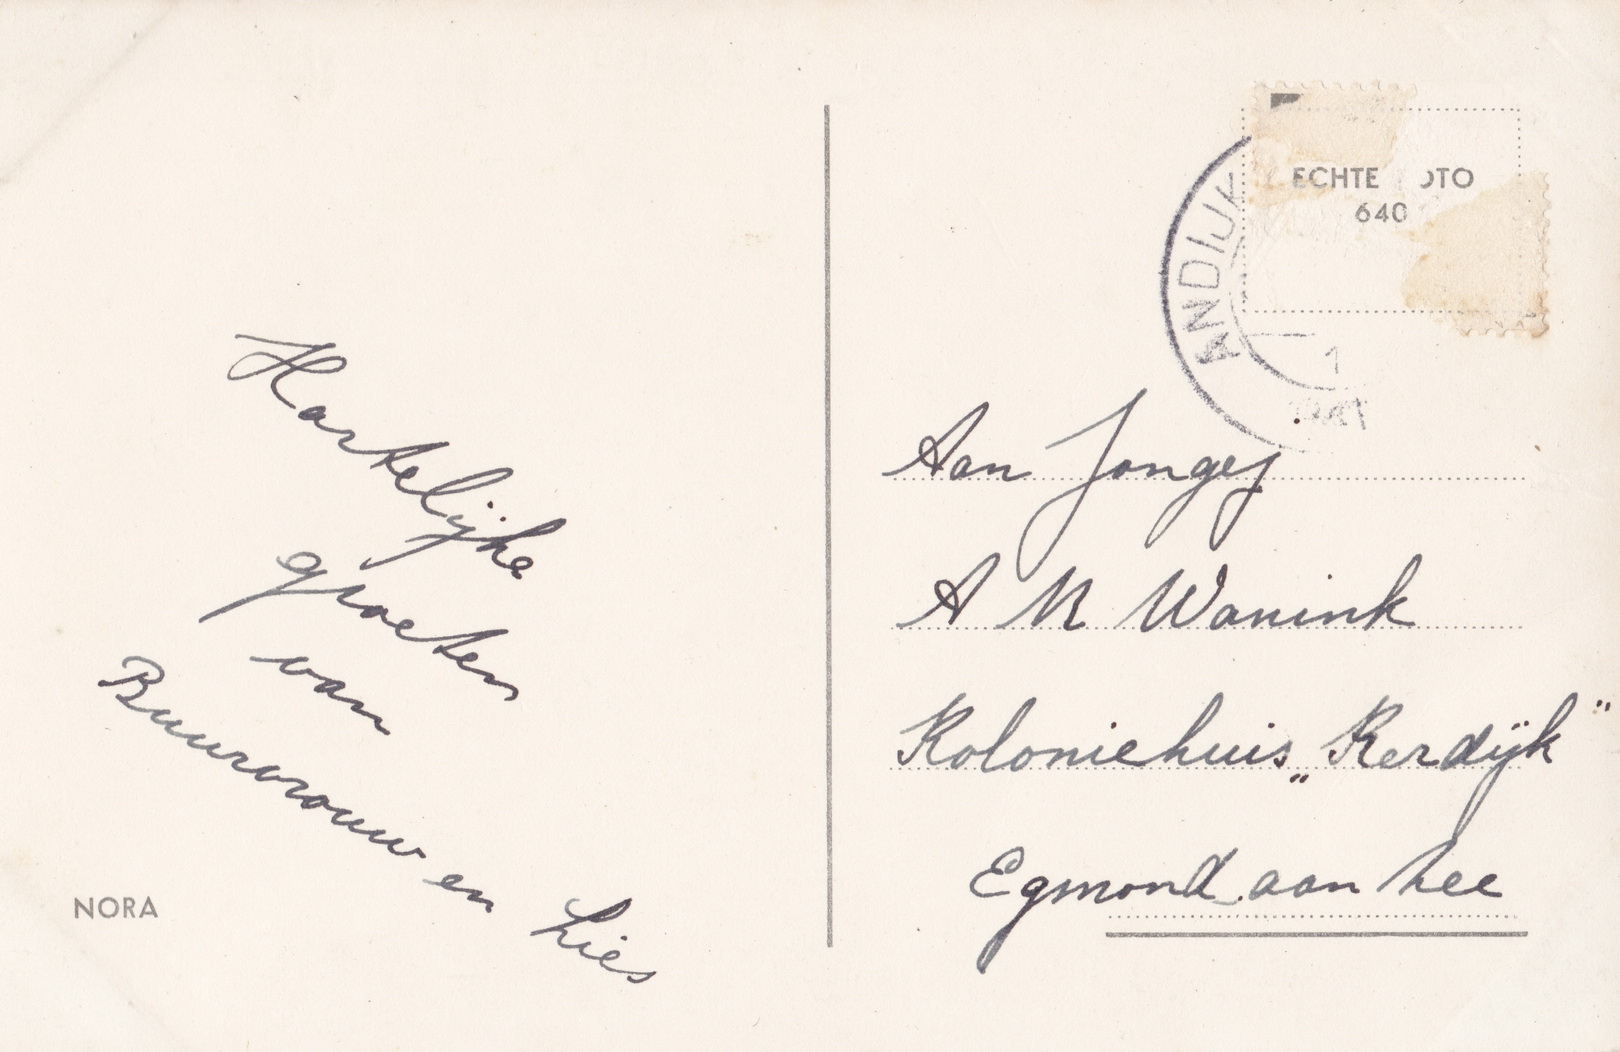 Hartelijke
groeten
van
Buurvrouw en Lies
NORA
ECHTE OTO
640
ANDIJK
1
Aan Jongej
A M Wanink
Koloniehuis „Kerdijk"
Egmond aan Zee